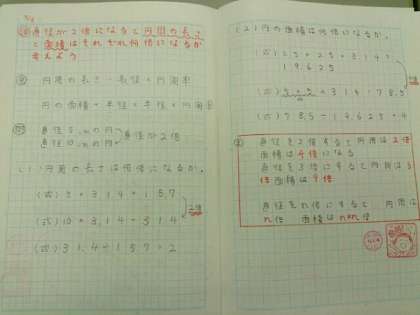 直径が2倍になると円周の長さ
と面積はそれぞれ何倍になるか
考えよう
円周の長さ=直径×円周率
円の面積=半径×半径×円周率
直径5cmの円
直径10cmの円
直径が2倍
(1)円周の長さは何倍になるか。
(式)5×3.14=15.7
(式)10×3.14=31.4
2倍
(式)31.4÷15.7=2
(2)円の面積は何倍になるか。
(式)2.5×2.5×3.14=
19.625
(式)5×5×3.14=78.5
4倍
(式)78.5÷19.625=4
直径を2倍すると円周は2倍
面積は4倍になる
直径を3倍にすると円周は3
倍面積は9倍
直径をn倍にすると 円周は
n倍 面積はn×n倍